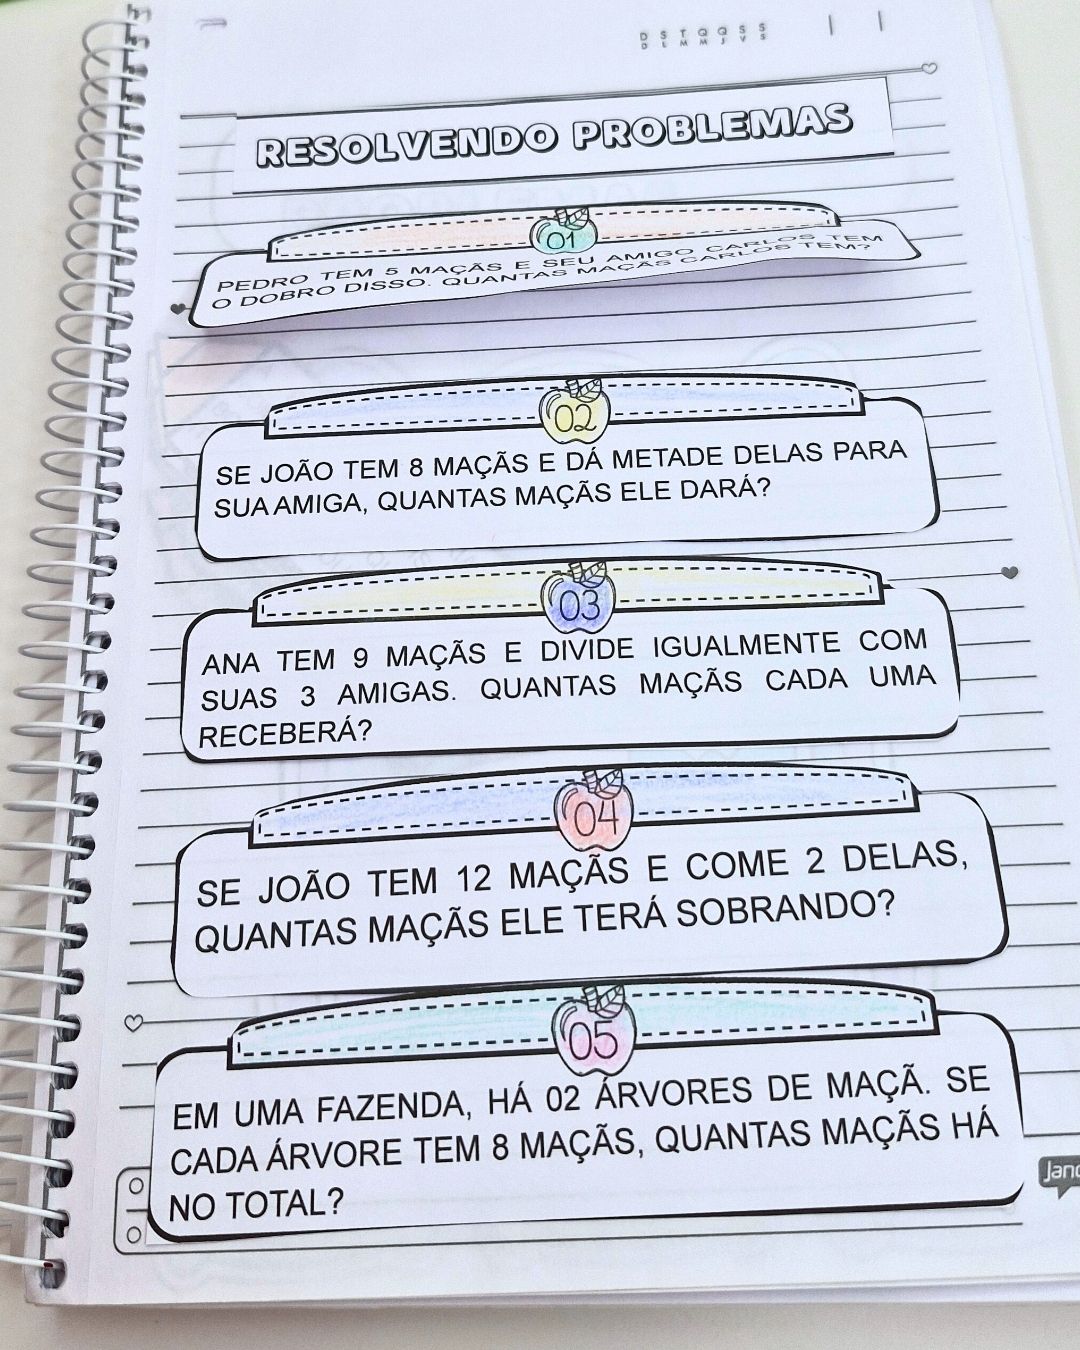 D S T Q Q S S
D L M M J V S
RESOLVENDO PROBLEMAS
01
PEDRO TEM 5 MAÇÃS E SEU AMIGO CARLOS TEM
O DOBRO DISSO. QUANTAS MAÇÃS CARLOS TEM?
02
SE JOÃO TEM 8 MAÇÃS E DÁ METADE DELAS PARA
SUA AMIGA, QUANTAS MAÇÃS ELE DARÁ?
03
ANA TEM 9 MAÇÃS E DIVIDE IGUALMENTE COM
SUAS 3 AMIGAS. QUANTAS MAÇÃS CADA UMA
RECEBERÁ?
04
SE JOÃO TEM 12 MAÇÃS E COME 2 DELAS,
QUANTAS MAÇÃS ELE TERÁ SOBRANDO?
05
EM UMA FAZENDA, HÁ 02 ÁRVORES DE MAÇÃ. SE
CADA ÁRVORE TEM 8 MAÇÃS, QUANTAS MAÇÃS HÁ
NO TOTAL?